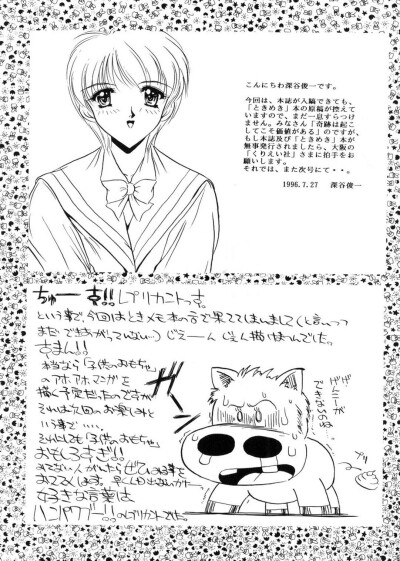 こんにちわ深谷俊一です。
今回は、本誌が入稿できても、
「ときめき」本の原稿が控えて
いますので、まだ一息すらつけ
ません。みなさん「奇跡は起こ
してこそ価値がある」のですが、
もし本誌及び「ときめき」本が
無事発行されましたら、大阪の
「くりえい社」さまに拍手をお
願いします。
それでは、また次号にて・・。
1996.7.27 深谷俊一
ちゅーす!!レプリカントっす
という事で、今回はときメモ本の方で果ててしまいまして(と言いつつ
まだできあがってない…)じぇーんじぇん描けませんでした。
すまん!!
本当なら「子供のおもちゃ」
のアホアホマンガを
描く予定だったのですが
それは次回のお楽しみと
いう事で…‥。
それにしても「子供のおもちゃ」
おもしろすぎ!!
みてない人がいたら
好きな言葉は
ハンヤワブー!!のレプリカントでした。